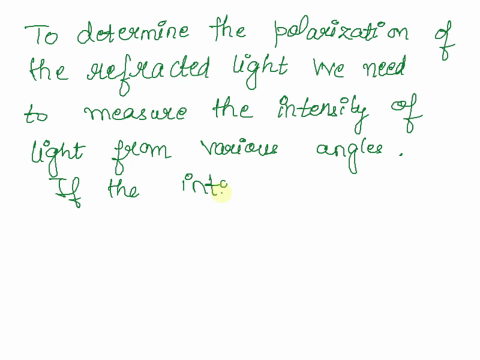 To determine the polarization of
the refracted light we need
to measure the intensity of
light from various angles.
If the int